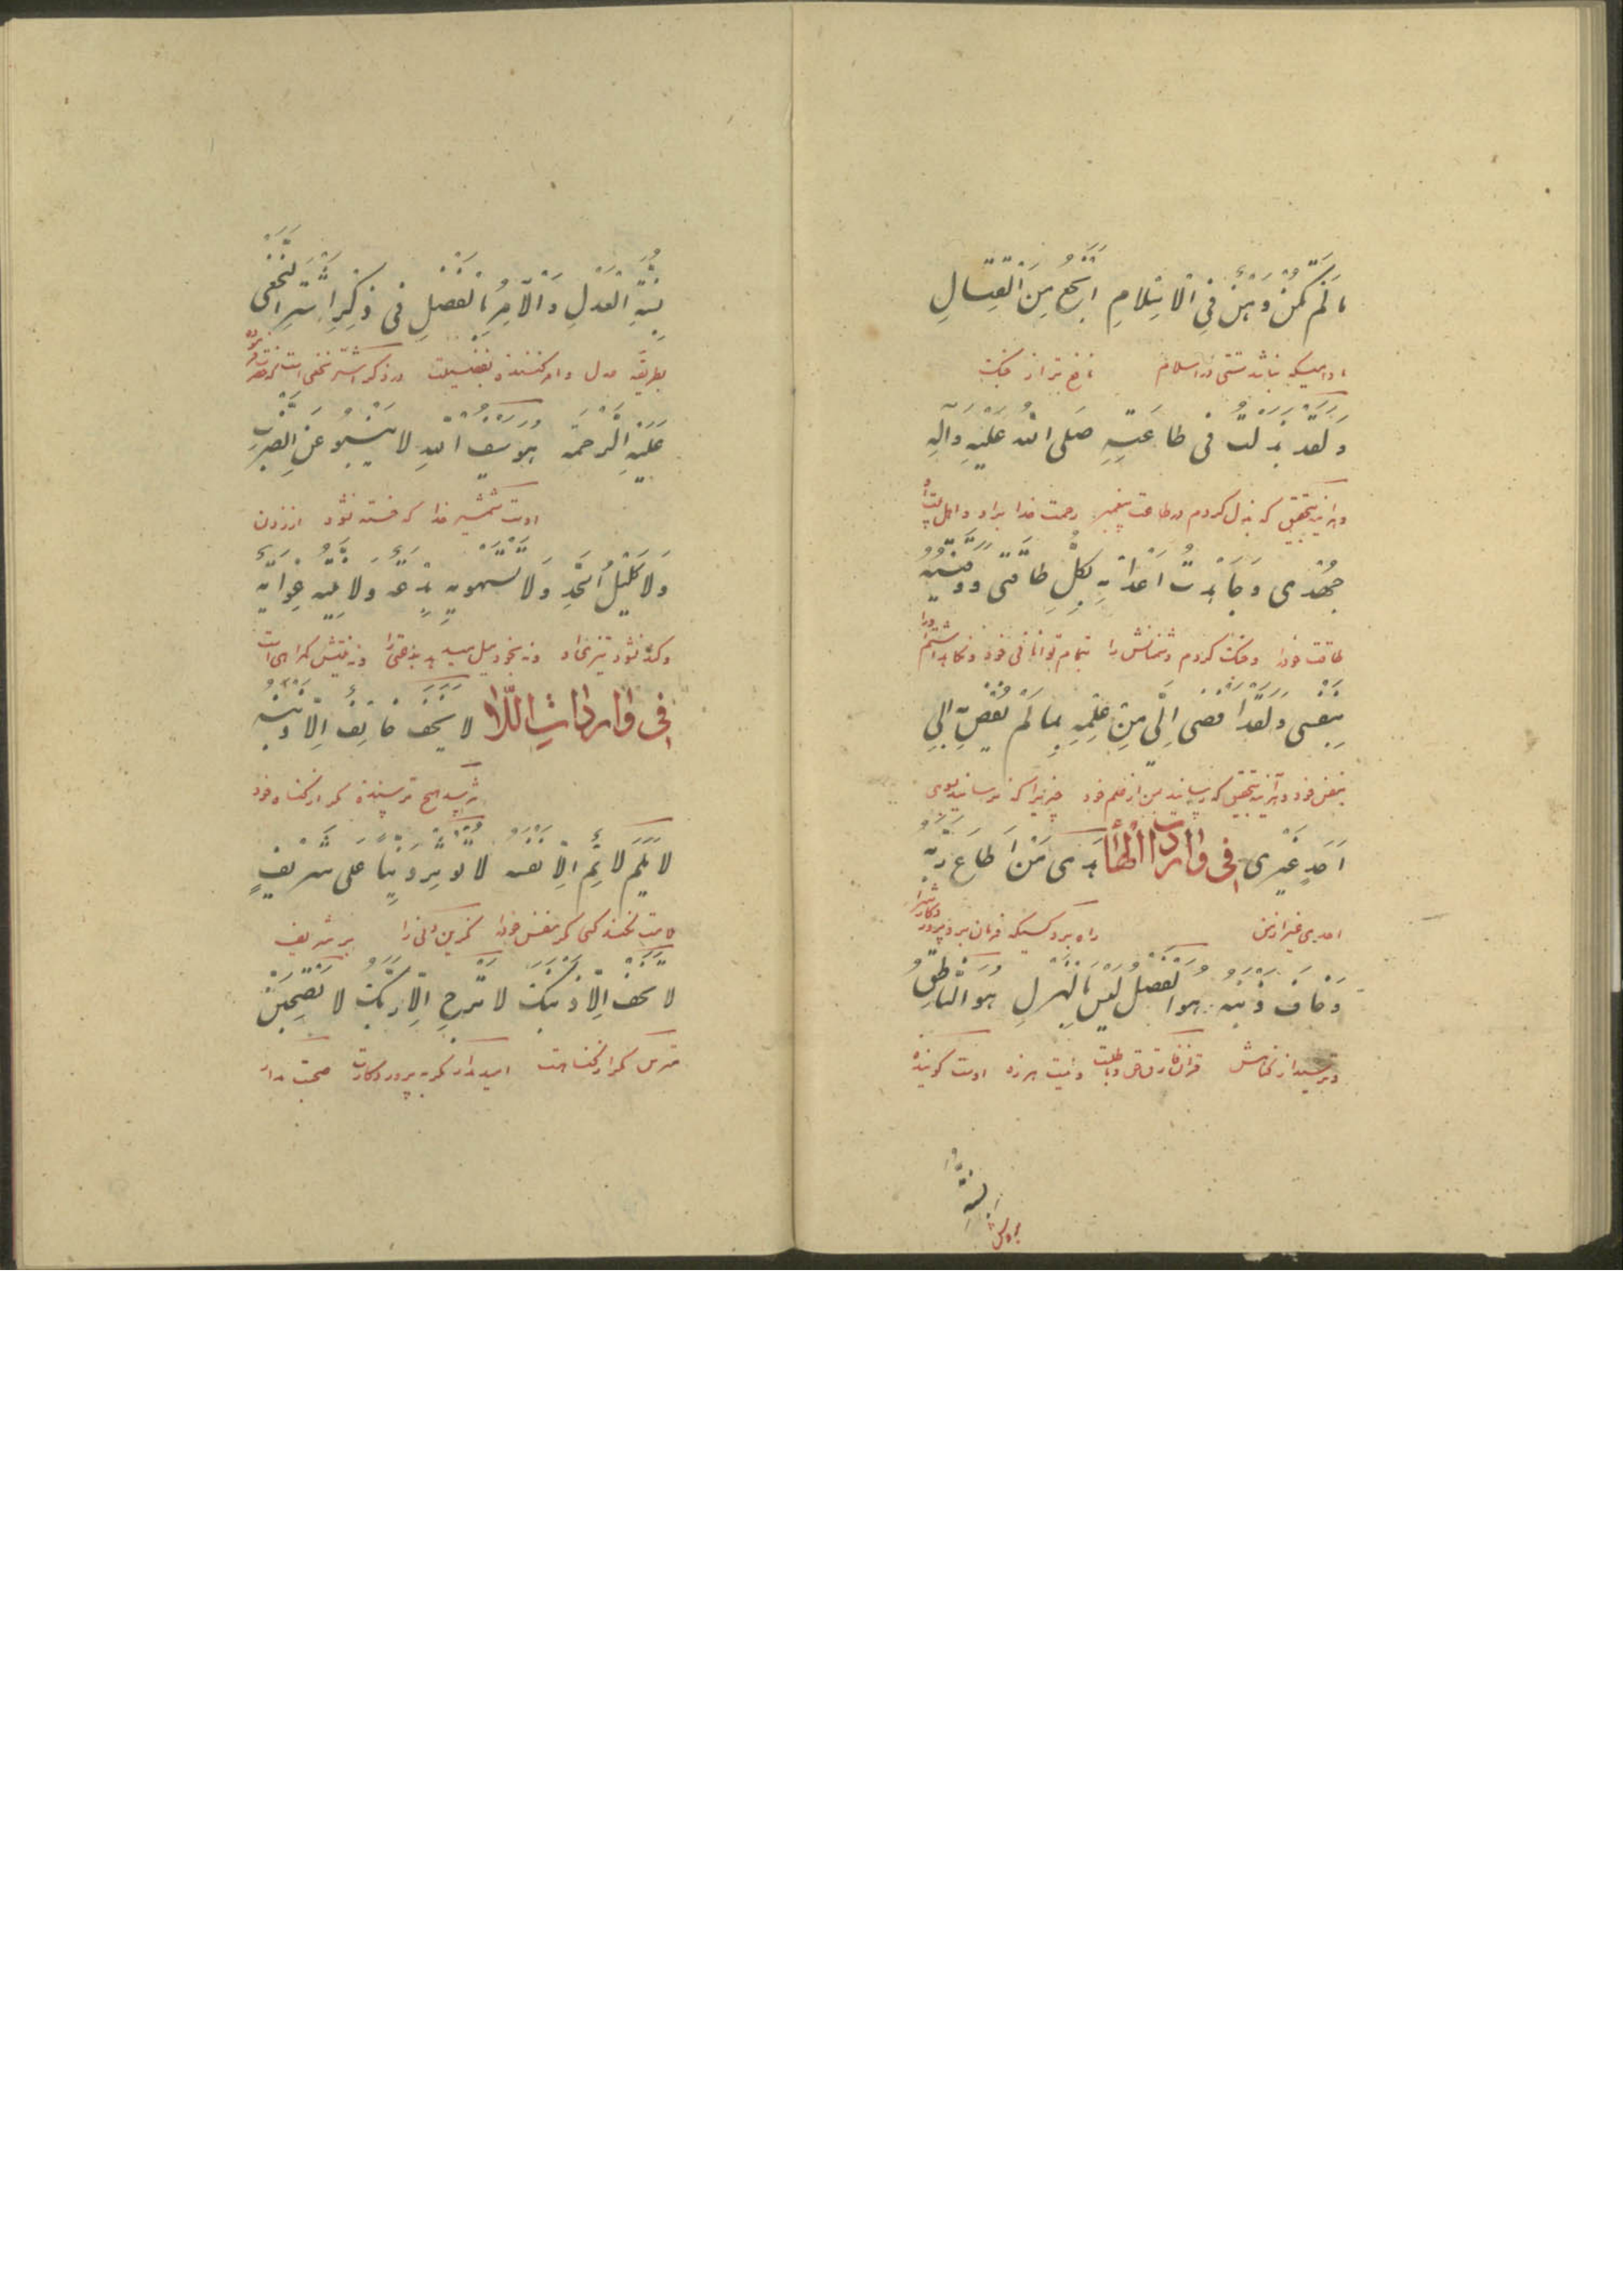 ما لَمْ يَكُنْ وَهْنٌ فِي الْاِسْلامِ اَنْجَعُ مِنَ الْقِتالِ
مادامیکه نباشد سستی در اسلام نافع‌تر از جنگ
وَلَقَدْ بَذَلْتُ فی طاعَتِهِ صَلَی اللهُ عَلَيْهِ وَآلِهِ
و هر آینه بتحقیق که بذل کردم در طاعت پیغمبر رحمت خدا بر او و آل
جُهْدی وَجاهَدْتُ اَعْدائَهُ بِكُلِّ طاقَتی وَوَقَيْتُهُ
طاقت خود را و جنگ کردم دشمنانش را بتمام توانائی خود و نگاه داشتم او را
بِنَفْسی وَلَقَدْ اَفْضی اِلَیَّ مِنْ عِلْمِهِ بِما لَمْ يُفْضِ اِلی
بنفس خود و هر آینه بتحقیق که رسانید بمن از علم خود چیزیرا که نرسانید بسوی
اَحَدٍ غَيْری فی واردات الهاء هَدی مَنْ اَطاعَ رَبَّهُ
احدی غیر از من راه برد کسیکه فرمان برد پروردگارش را
وَخافَ ذَنْبَهُ هُوَ الْفَصْلُ لَيْسَ بِالْهَزْلِ هُوَ النّاطِقُ
و ترسید از گناهش قرآن فارق حق و باطلست و نیست هرزه اوست گوینده
بِسُنَّةِ
بروش
بِسُنَّةِ الْعَدْلِ وَالْآمِرُ بِالْفَضْلِ فی ذِكْرِ اَشْتَرِ النَّخَعی
بطریقه عدل و امر کننده بفضیلت در ذکر اشتر نخعی است
عَلَيْهِ الرَّحْمَة هُوَ سَيْفُ اللهِ لا يَنْبُو عَنِ الضَّرْبِ
اوست شمشیر خدا که خسته نشود از زدن
وَلا كَليلُ الْحَدِّ وَلا تَسْتَهْويهِ بِدْعَةٌ وَلا تَتيهُ بِهِ غِوايَةٌ
و کند نشود تیزی او و نه بخود میل میدهد بدعتی او را
فی واردات اللّا لا يَخَفْ خائِفٌ اِلّا ذَنْبَهُ
نترسد هیچ ترسنده مگر از گناه خود
لا يَلُمْ لائِمٌ اِلّا نَفْسَهُ لا تُؤْثِرْ دَنِيّاً عَلی شَريفٍ
ملامت نکند کسی مگر نفس خود را مگزین دنی را بر شریف
لا تَخَفْ اِلّا ذَنْبَكَ لا تَرْجُ اِلّا رَبَّكَ لا تَصْحَبَنَّ
مترس مگر از گناهت امید مدار مگر به پروردگارت صحبت مدار